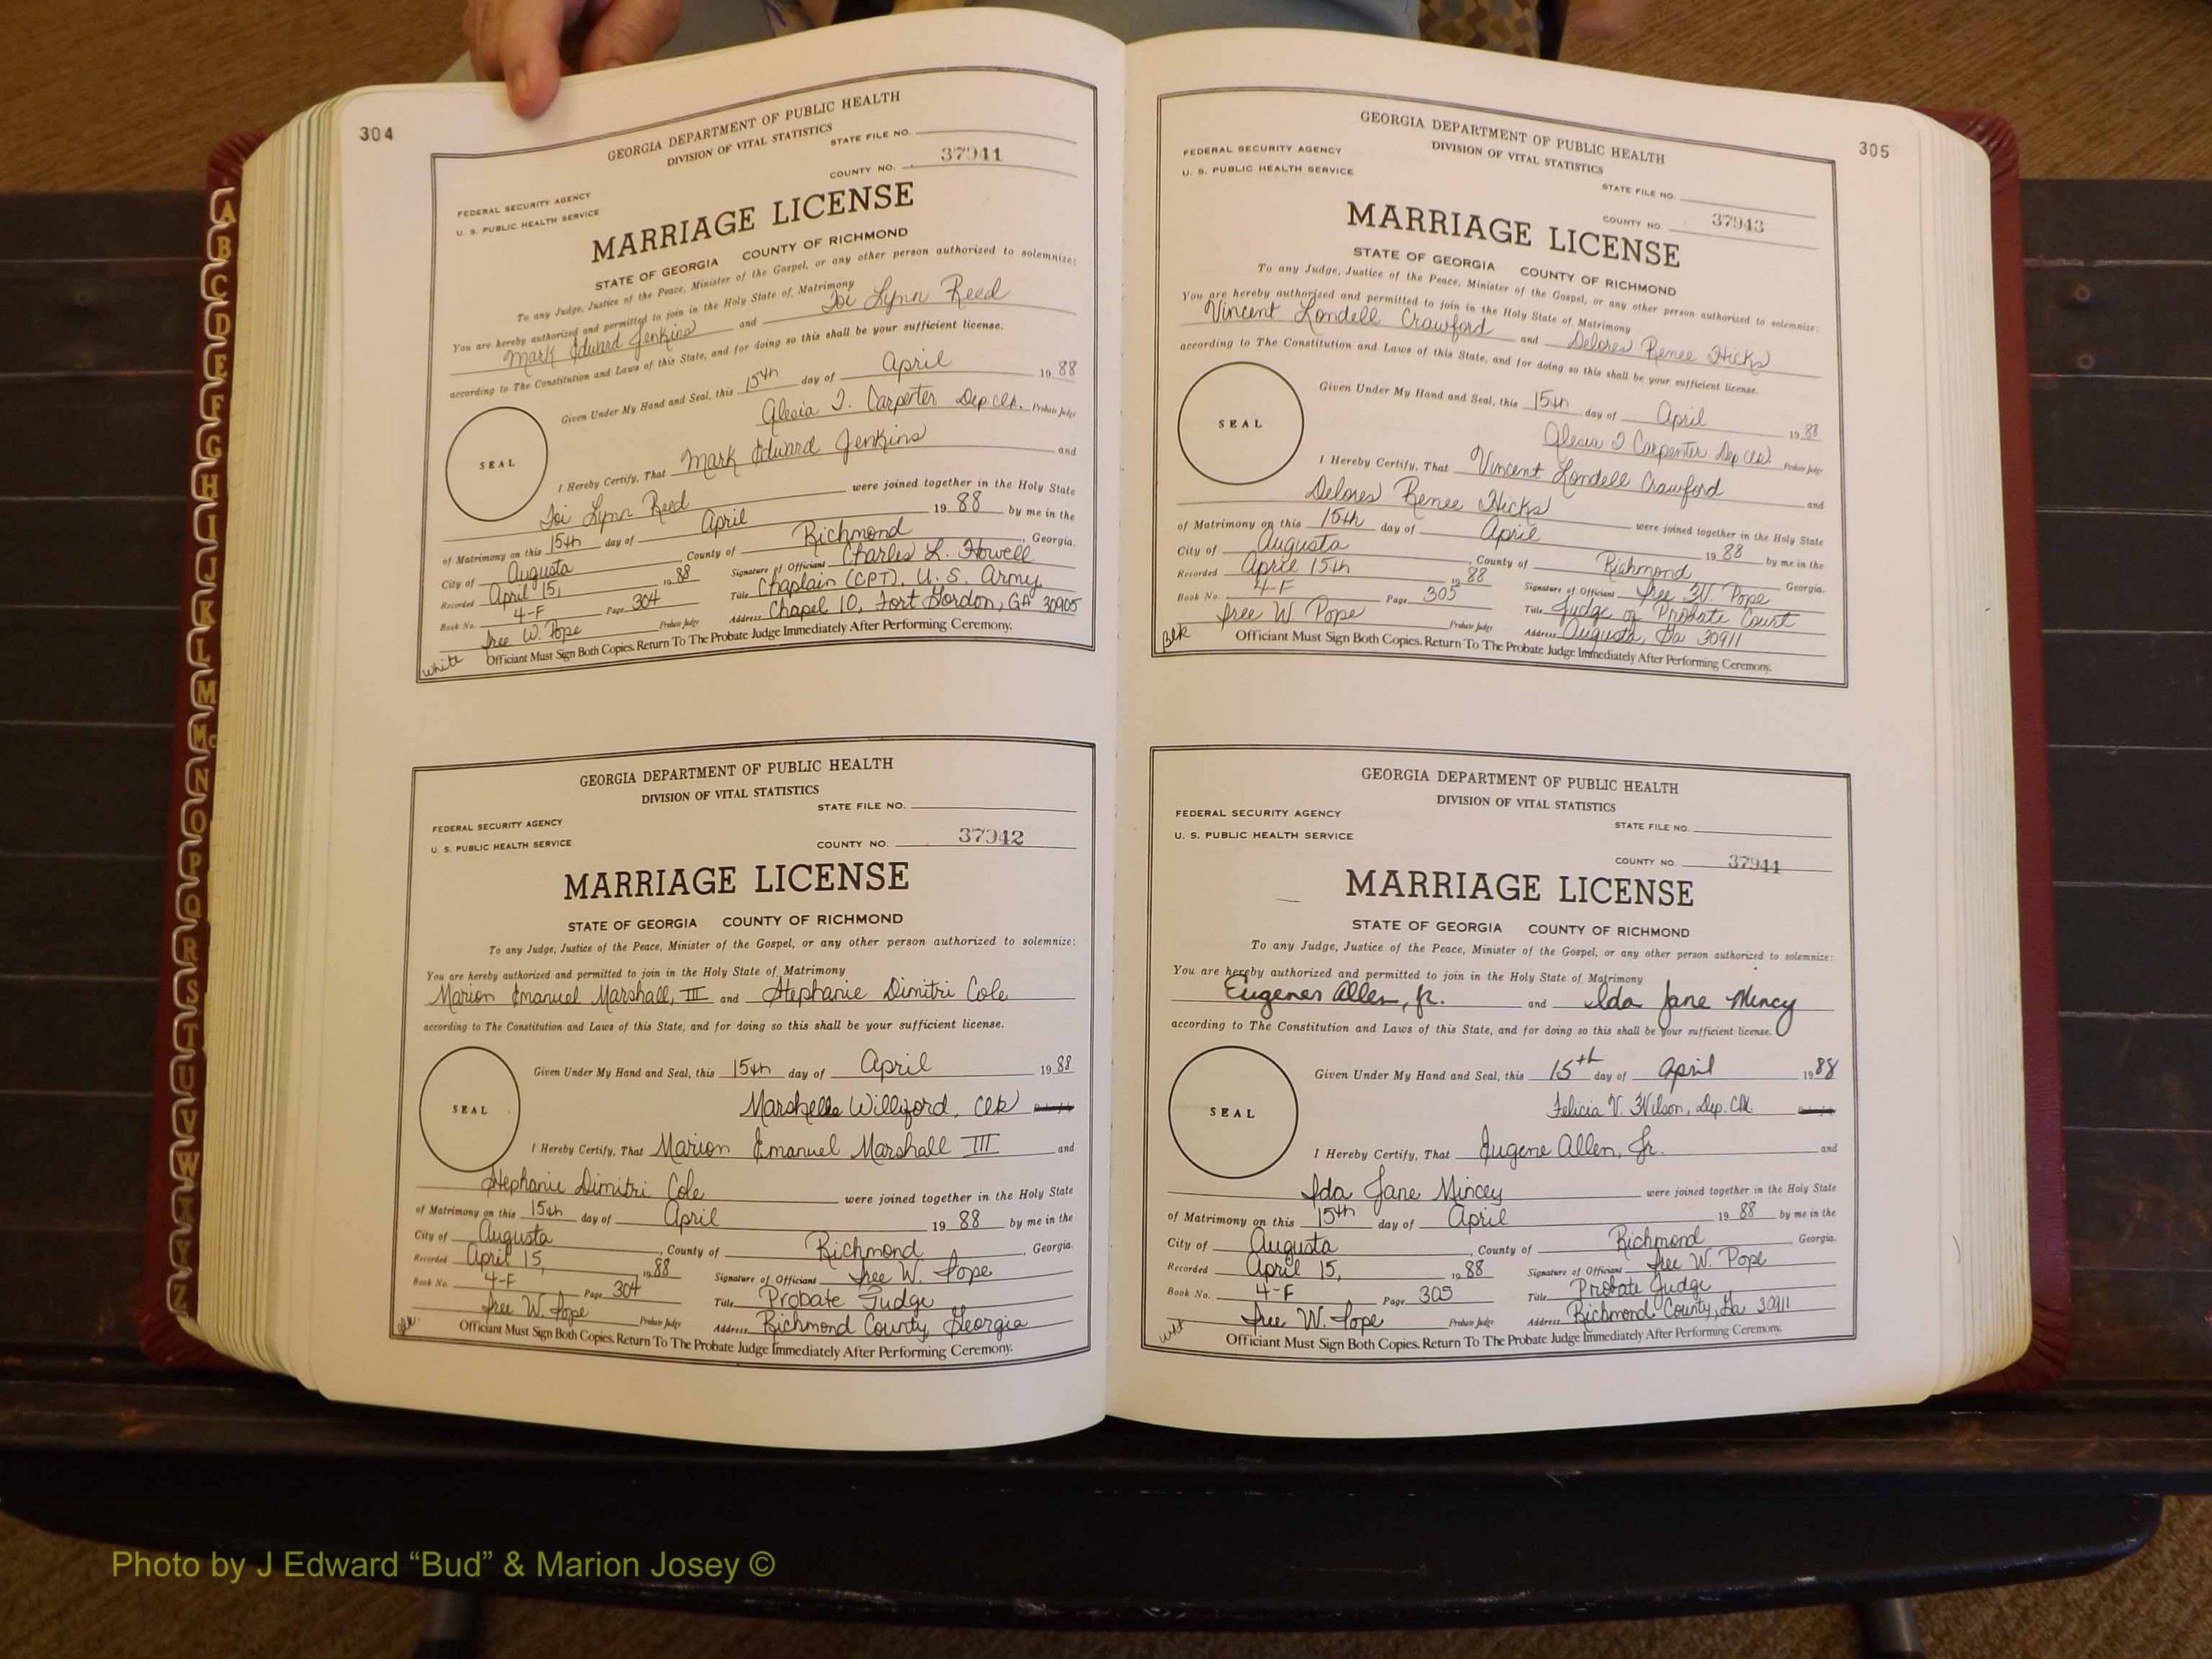 304
GEORGIA DEPARTMENT OF PUBLIC HEALTH
DIVISION OF VITAL STATISTICS
STATE FILE NO.
COUNTY NO. 37941
FEDERAL SECURITY AGENCY
U. S. PUBLIC HEALTH SERVICE
MARRIAGE LICENSE
STATE OF GEORGIA COUNTY OF RICHMOND
To any Judge, Justice of the Peace, Minister of the Gospel, or any other person authorized to solemnize:
You are hereby authorized and permitted to join in the Holy State of Matrimony
Mark Edward Jenkins and Toi Lynn Reed
according to The Constitution and Laws of this State, and for doing so this shall be your sufficient license.
Given Under My Hand and Seal, this 15th day of April 1988
Alesia T. Carpenter Dep. Clk. Probate Judge
SEAL
I Hereby Certify, That Mark Edward Jenkins and
Toi Lynn Reed were joined together in the Holy State
of Matrimony on this 15th day of April 19 88 by me in the
City of Augusta, County of Richmond, Georgia.
Recorded April 15, 1988 Signature of Officiant Charles L. Howell
Book No. 4-F Page 304 Title Chaplain (CPT), U.S. Army
Iree W. Pope Probate Judge Address Chapel 10, Fort Gordon, GA 30905
White Officiant Must Sign Both Copies. Return To The Probate Judge Immediately After Performing Ceremony.
GEORGIA DEPARTMENT OF PUBLIC HEALTH
DIVISION OF VITAL STATISTICS
STATE FILE NO.
FEDERAL SECURITY AGENCY
U. S. PUBLIC HEALTH SERVICE
COUNTY NO. 37942
MARRIAGE LICENSE
STATE OF GEORGIA COUNTY OF RICHMOND
To any Judge, Justice of the Peace, Minister of the Gospel, or any other person authorized to solemnize:
You are hereby authorized and permitted to join in the Holy State of Matrimony
Marion Emanuel Marshall, III and Stephanie Dimitri Cole
according to The Constitution and Laws of this State, and for doing so this shall be your sufficient license.
Given Under My Hand and Seal, this 15th day of April 1988
Marshelle Williford, Clk
SEAL
I Hereby Certify, That Marion Emanuel Marshall III and
Stephanie Dimitri Cole were joined together in the Holy State
of Matrimony on this 15th day of April 19 88 by me in the
City of Augusta, County of Richmond, Georgia.
Recorded April 15, 1988 Signature of Officiant Iree W. Pope
Book No. 4-F Page 304 Title Probate Judge
Iree W. Pope Probate Judge Address Richmond County, Georgia
Officiant Must Sign Both Copies. Return To The Probate Judge Immediately After Performing Ceremony.
305
GEORGIA DEPARTMENT OF PUBLIC HEALTH
DIVISION OF VITAL STATISTICS
FEDERAL SECURITY AGENCY
U. S. PUBLIC HEALTH SERVICE
STATE FILE NO.
COUNTY NO. 37943
MARRIAGE LICENSE
STATE OF GEORGIA COUNTY OF RICHMOND
To any Judge, Justice of the Peace, Minister of the Gospel, or any other person authorized to solemnize:
You are hereby authorized and permitted to join in the Holy State of Matrimony
Vincent Londell Crawford and Delores Renee Hicks
according to The Constitution and Laws of this State, and for doing so this shall be your sufficient license.
Given Under My Hand and Seal, this 15th day of April 1988
Alesia T Carpenter Dep Clk. Probate Judge
SEAL
I Hereby Certify, That Vincent Londell Crawford and
Delores Renee Hicks were joined together in the Holy State
of Matrimony on this 15th day of April 19 88 by me in the
City of Augusta, County of Richmond Georgia.
Recorded April 15th 1988 Signature of Officiant Iree W. Pope
Book No. 4-F Page 305 Title Judge of Probate Court
Iree W. Pope Probate Judge Address Augusta, Ga 30911
Blk Officiant Must Sign Both Copies. Return To The Probate Judge Immediately After Performing Ceremony.
GEORGIA DEPARTMENT OF PUBLIC HEALTH
DIVISION OF VITAL STATISTICS
FEDERAL SECURITY AGENCY
STATE FILE NO.
U. S. PUBLIC HEALTH SERVICE
COUNTY NO. 37944
MARRIAGE LICENSE
STATE OF GEORGIA COUNTY OF RICHMOND
To any Judge, Justice of the Peace, Minister of the Gospel, or any other person authorized to solemnize:
You are hereby authorized and permitted to join in the Holy State of Matrimony
Eugenes Allen, Jr. and Ida Jane Mincy
according to The Constitution and Laws of this State, and for doing so this shall be your sufficient license.
Given Under My Hand and Seal, this 15th day of April 1988
Felicia V. Wilson, Dep. Clk.
SEAL
I Hereby Certify, That Eugene Allen, Jr. and
Ida Jane Mincey were joined together in the Holy State
of Matrimony on this 15th day of April 19 88 by me in the
City of Augusta, County of Richmond Georgia.
Recorded April 15, 1988 Signature of Officiant Iree W. Pope
Book No. 4-F Page 305 Title Probate Judge
Iree W. Pope Probate Judge Address Richmond County, Ga 30911
Officiant Must Sign Both Copies. Return To The Probate Judge Immediately After Performing Ceremony.
A
B
C
D
E
F
G
H
I
J
K
L
M
Mc
N
O
P
Q
R
S
T
U
V
W
X
Y
Z
Photo by J Edward “Bud” & Marion Josey ©